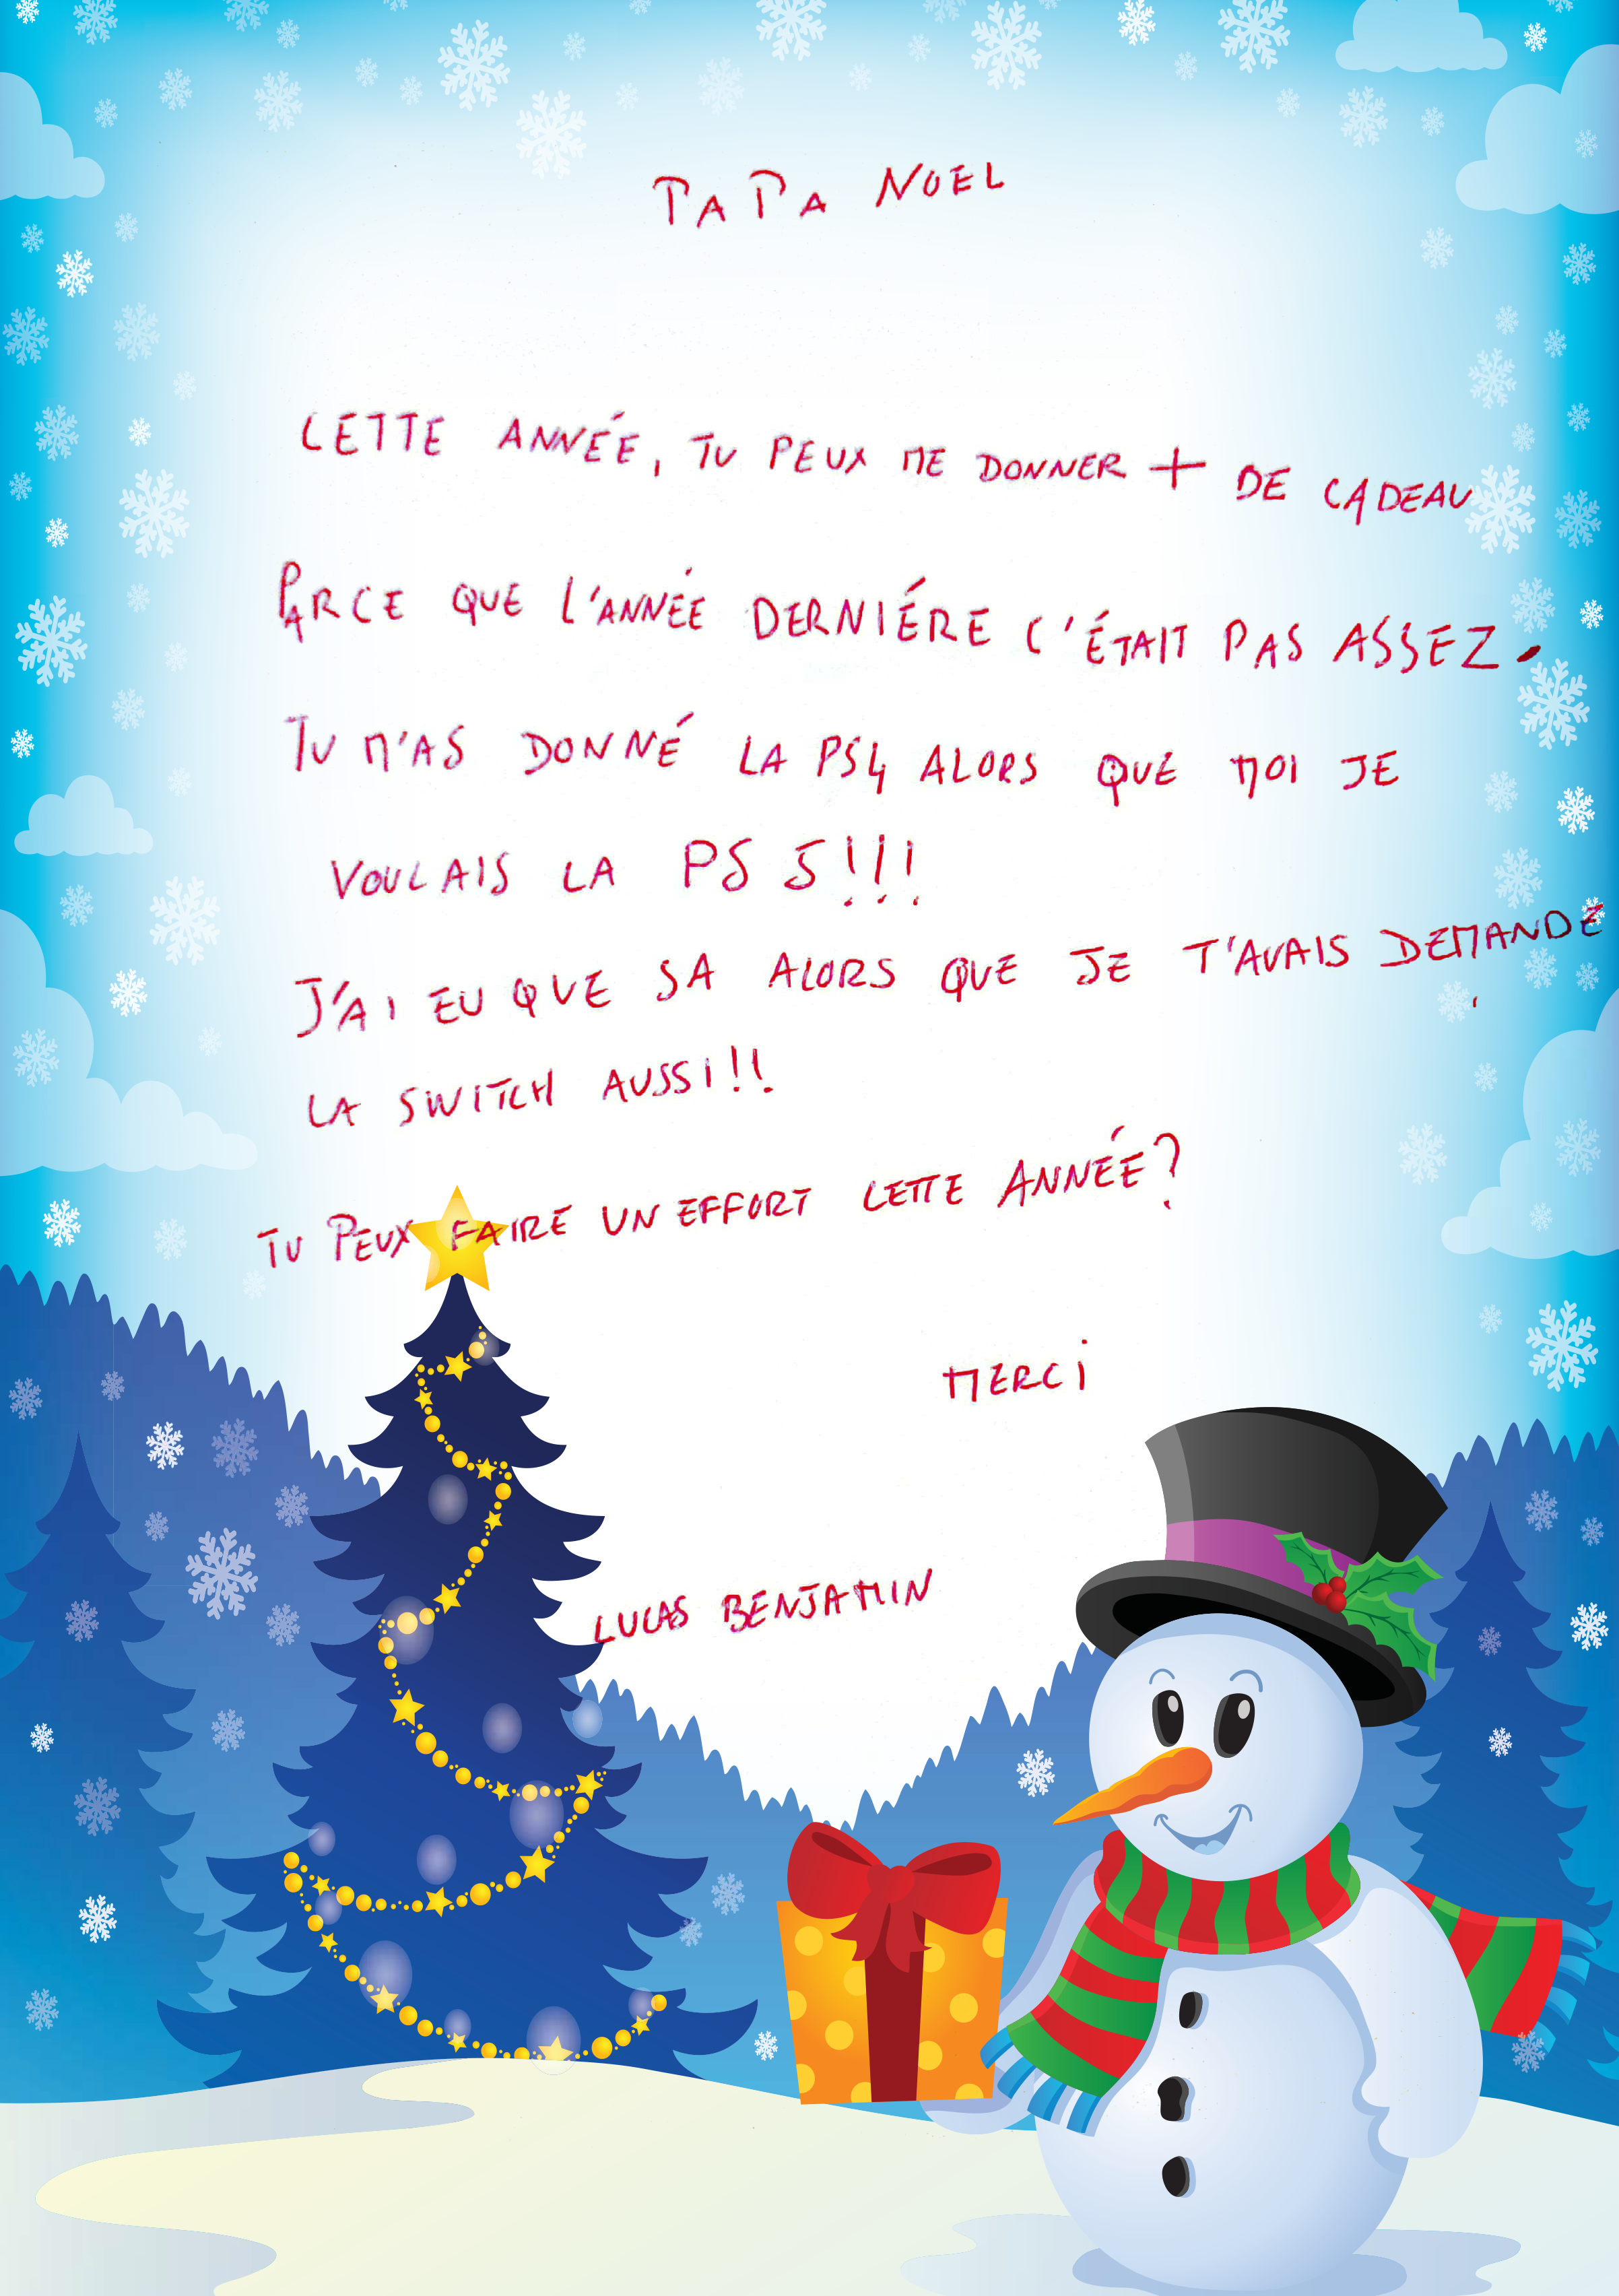 PAPA NOEL
CETTE ANNÉE, TU PEUX ME DONNER + DE CADEAU
PARCE QUE L'ANNÉE DERNIÉRE C'ÉTAIT PAS ASSEZ.
TU M'AS DONNÉ LA PS4 ALORS QUE MOI JE
VOULAIS LA PS5!!!
J'AI EU QUE SA ALORS QUE JE T'AVAIS DEMANDE
LA SWITCH AUSSI!!
TU PEUX FAIRE UN EFFORT CETTE ANNÉE?
MERCI
LUCAS BENJAMIN